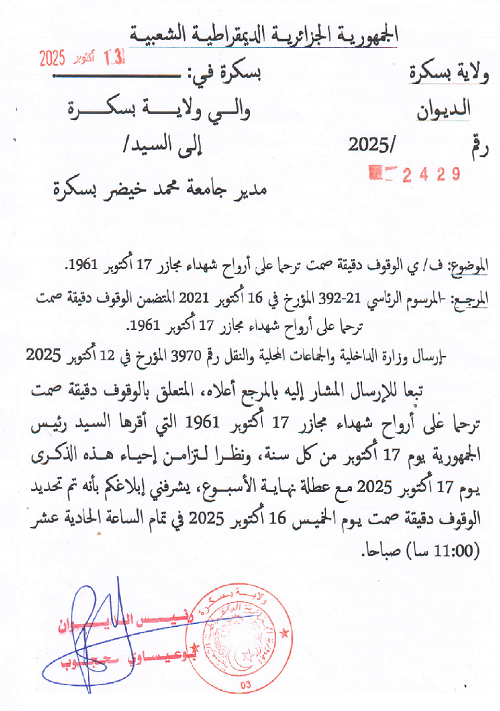 الجمهورية الجزائرية الديمقراطية الشعبية
ولاية بسكرة
بسكرة في:
13 أكتوبر 2025
الديوان
والي ولاية بسكرة
رقم /2025
إلى السيد/
2429
مدير جامعة محمد خيضر بسكرة
الموضوع: ف/ ي الوقوف دقيقة صمت ترحما على أرواح شهداء مجازر 17 أكتوبر 1961.
المرجع: -المرسوم الرئاسي 21-392 المؤرخ في 16 أكتوبر 2021 المتضمن الوقوف دقيقة صمت
ترحما على أرواح شهداء مجازر 17 أكتوبر 1961.
-إرسال وزارة الداخلية والجماعات المحلية والنقل رقم 3970 المؤرخ في 12 أكتوبر 2025
تبعا للإرسال المشار إليه بالمرجع أعلاه، المتعلق بالوقوف دقيقة صمت
ترحما على أرواح شهداء مجازر 17 أكتوبر 1961 التي أقرها السيد رئيس
الجمهورية يوم 17 أكتوبر من كل سنة، ونظرا لتزامن إحياء هذه الذكرى
يوم 17 أكتوبر 2025 مع عطلة نهاية الأسبوع، يشرفني إبلاغكم بأنه تم تحديد
الوقوف دقيقة صمت يوم الخميس 16 أكتوبر 2025 في تمام الساعة الحادية عشر
(11:00 سا) صباحا.
رئيس الديوان
ولاية بسكرة
03